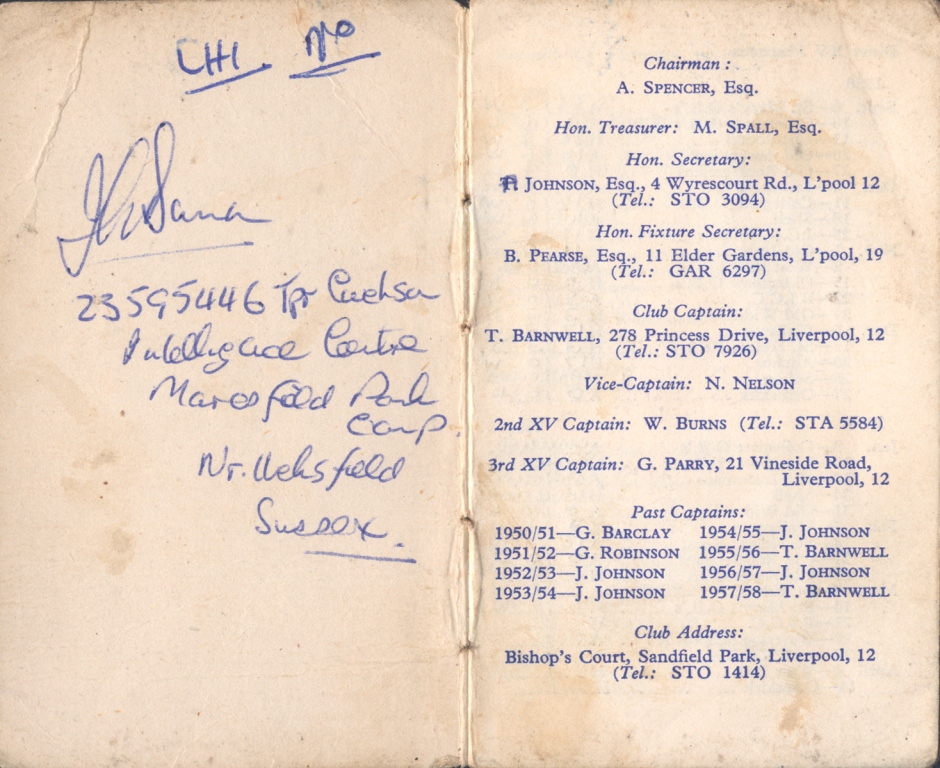 CHI. No
23595446 Tpr
Intelligence Centre
Maresfield Park
Camp.
Nr. Uckfield
Sussex.
Chairman:
A. SPENCER, Esq.
Hon. Treasurer: M. SPALL, Esq.
Hon. Secretary:
JOHNSON, Esq., 4 Wyrescourt Rd., L'pool 12
(Tel.: STO 3094)
Hon. Fixture Secretary:
B. PEARSE, Esq., 11 Elder Gardens, L'pool, 19
(Tel.: GAR 6297)
Club Captain:
T. BARNWELL, 278 Princess Drive, Liverpool, 12
(Tel.: STO 7926)
Vice-Captain: N. NELSON
2nd XV Captain: W. BURNS (Tel.: STA 5584)
3rd XV Captain: G. PARRY, 21 Vineside Road,
Liverpool, 12
Past Captains:
1950/51—G. BARCLAY 1954/55—J. JOHNSON
1951/52—G. ROBINSON 1955/56—T. BARNWELL
1952/53—J. JOHNSON 1956/57—J. JOHNSON
1953/54—J. JOHNSON 1957/58—T. BARNWELL
Club Address:
Bishop's Court, Sandfield Park, Liverpool, 12
(Tel.: STO 1414)